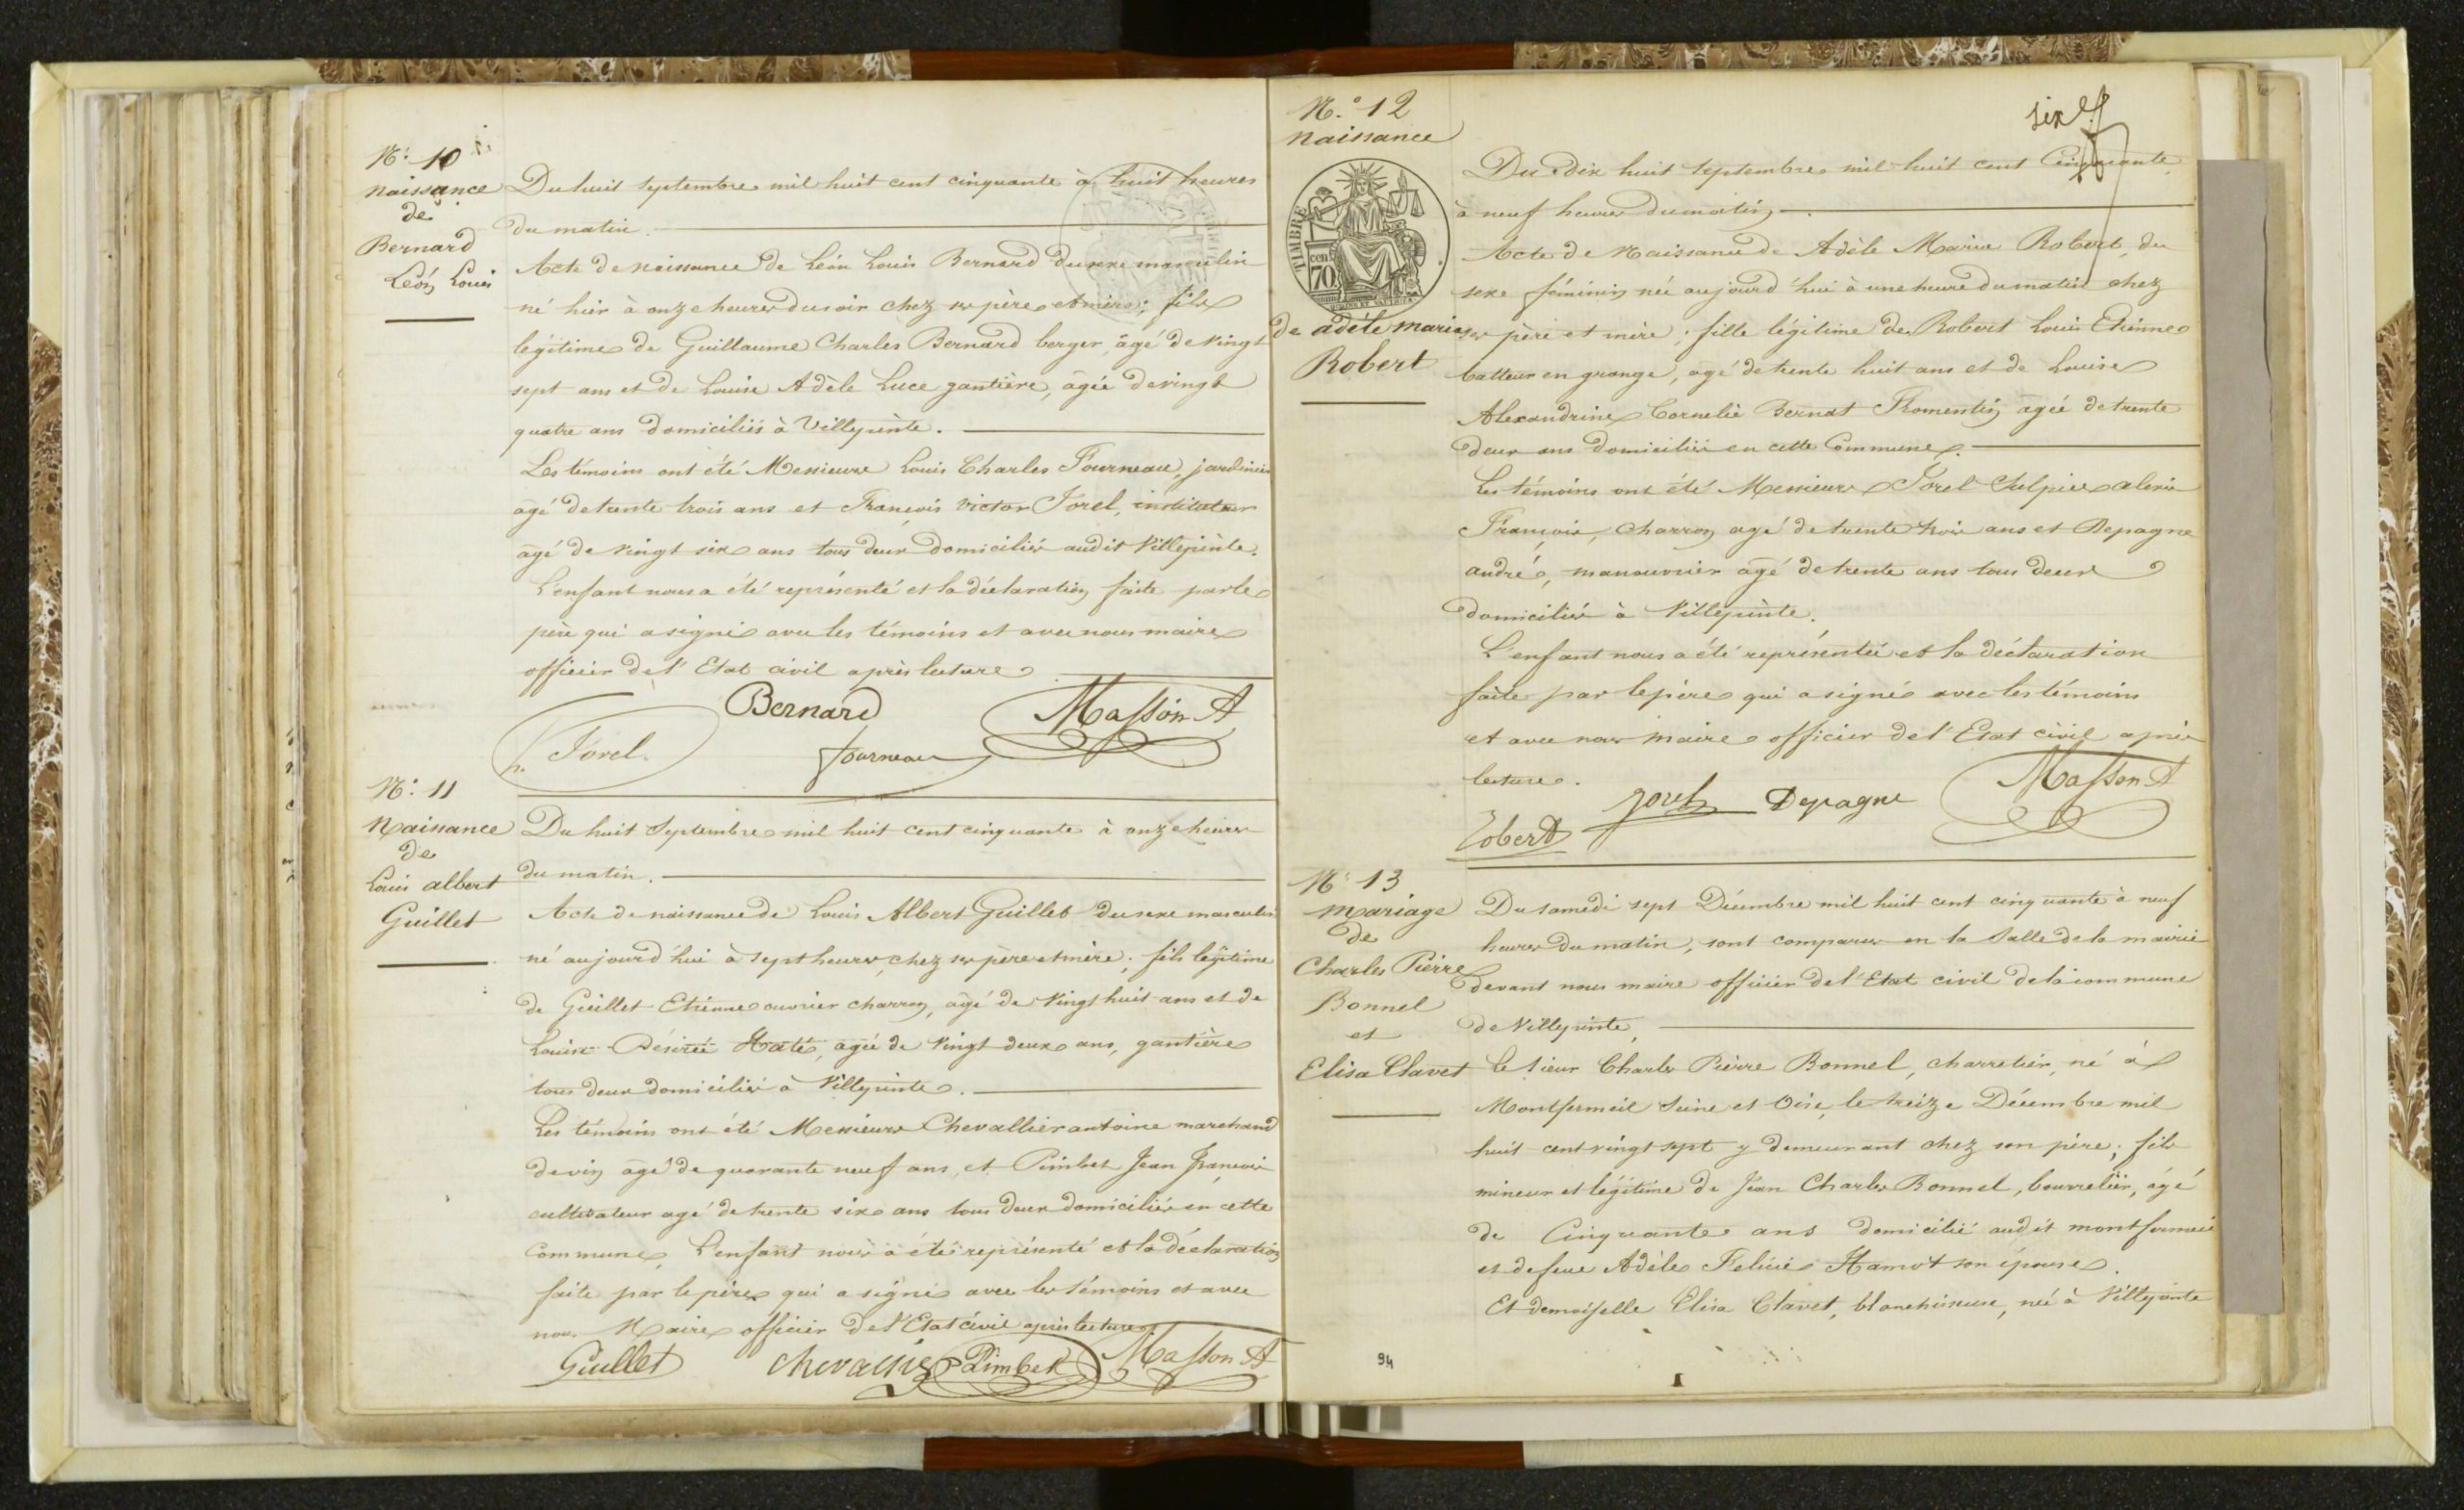 N.° 10
naissance
de
Bernard
Léon Louis
Du huit Septembre mil huit cent cinquante à huit heures
du matin.
Acte de naissance de Léon Louis Bernard du sexe masculin
né hier à onze heures du soir chez ses père et mère; fils
légitime de Guillaume Charles Bernard berger, âgé de vingt
sept ans et de Louise Adèle Luce gantière, âgée de vingt
quatre ans domiciliés à Villepinte.
Les témoins ont été Messieurs Louis Charles Fourneau, jardinier
âgé de trente trois ans et François Victor Jorel, instituteur
âgé de vingt six ans tous deux domiciliés audit Villepinte.
L'enfant nous a été représenté et la déclaration faite par le
père qui a signé avec les témoins et avec nous maire
officier de l'Etat civil après lecture
Bernard Masson A
Jorel fourneau
N.° 11
Naissance
de
Louis albert
Guillet
Du huit Septembre mil huit cent cinquante à onze heures
du matin.
Acte de naissance de Louis Albert Guillet du sexe masculin
né aujourd'hui à sept heures, chez ses père et mère; fils légitime
de Guillet Etienne ouvrier charron, âgé de vingt huit ans et de
Louise Désirée Haté, agée de vingt deux ans, gantière
tous deux domiciliés à Villepinte.
Les témoins ont été Messieurs Chevallier antoine marchand
de vin âgé de quarante neuf ans, et Pimbet Jean François
cultivateur agé de trente six ans tous deux domiciliés en cette
Commune, L'enfant nous a été représenté et la déclaration
faite par le père qui a signé avec les témoins et avec
nous Maire officier de l'Etat civil après lecture
Guillet chevallier Pimbet Masson A
N.° 12
naissance
TIMBRE
70 cen
de adèle marie
Robert
six
Du dix huit Septembre mil huit cent Cinquante
à neuf heures du matin.
Acte de Naissance de Adèle Marie Robert, du
sexe féminin née aujourd'hui à une heure du matin chez
ses père et mère; fille légitime de Robert Louis Etienne
batteur en grange, âgé de trente huit ans et de Louise
Alexandrine Cornelie Bernat Fromentin agée de trente
deux ans domiciliés en cette Commune.
Les témoins ont été Messieurs Jorel Sulpice alexis
François, charron agé de trente trois ans et Depagne
andré, manouvrier âgé de trente ans tous deux
domiciliés à Villepinte.
L'enfant nous a été représentée et la déclaration
faite par le père qui a signé avec les témoins
et avec nous Maire officier de l'Etat civil après
lecture.
Robert Jorel Depagne Masson A
N.° 13
mariage
de
Charles Pierre
Bonnel
et
Elisa Clavet
Du samedi sept Décembre mil huit cent cinquante à neuf
heures du matin, sont comparus en la Salle de la mairie
devant nous maire officier de l'Etat civil de la commune
de Villepinte,
le sieur Charles Pierre Bonnel, charretier, né à
Montfermeil Seine et Oise, le treize Décembre mil
huit cent vingt sept y demeurant chez son père; fils
mineur et légitime de Jean Charles Bonnel, bourrelier, âgé
de Cinquante ans domicilié audit montfermeil
et de feue Adèle Felicie Hamot son épouse.
Et demoiselle Elisa Clavet, blanchisseuse, née à Villepinte
94